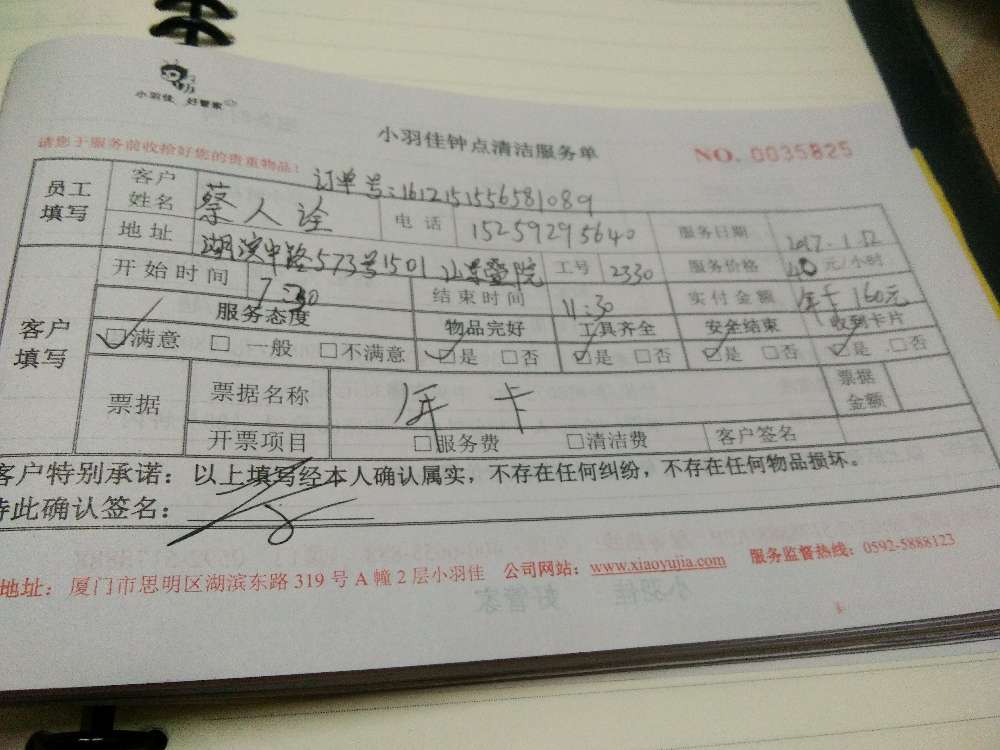 小羽佳 好管家
小羽佳钟点清洁服务单
NO. 0035825
请您于服务前收拾好您的贵重物品！
订单号:1612151556581089
员工填写 客户姓名 蔡人诠 电话 15259295640 服务日期 2017.1.12
地址 湖滨中路573号1501 工号 2330 服务价格 40元/小时
客户填写 开始时间 7:30 结束时间 11:30 实付金额 年卡160元
服务态度 物品完好 工具齐全 安全结束 收到卡片
☑满意 □一般 □不满意 ☑是 □否 ☑是 □否 ☑是 □否 ☑是 □否
票据 票据名称 年卡 票据金额
开票项目 □服务费 □清洁费 客户签名
客户特别承诺：以上填写经本人确认属实，不存在任何纠纷，不存在任何物品损坏。
特此确认签名：
地址：厦门市思明区湖滨东路319号A幢2层小羽佳 公司网站：www.xiaoyujia.com 服务监督热线：0592-5888123